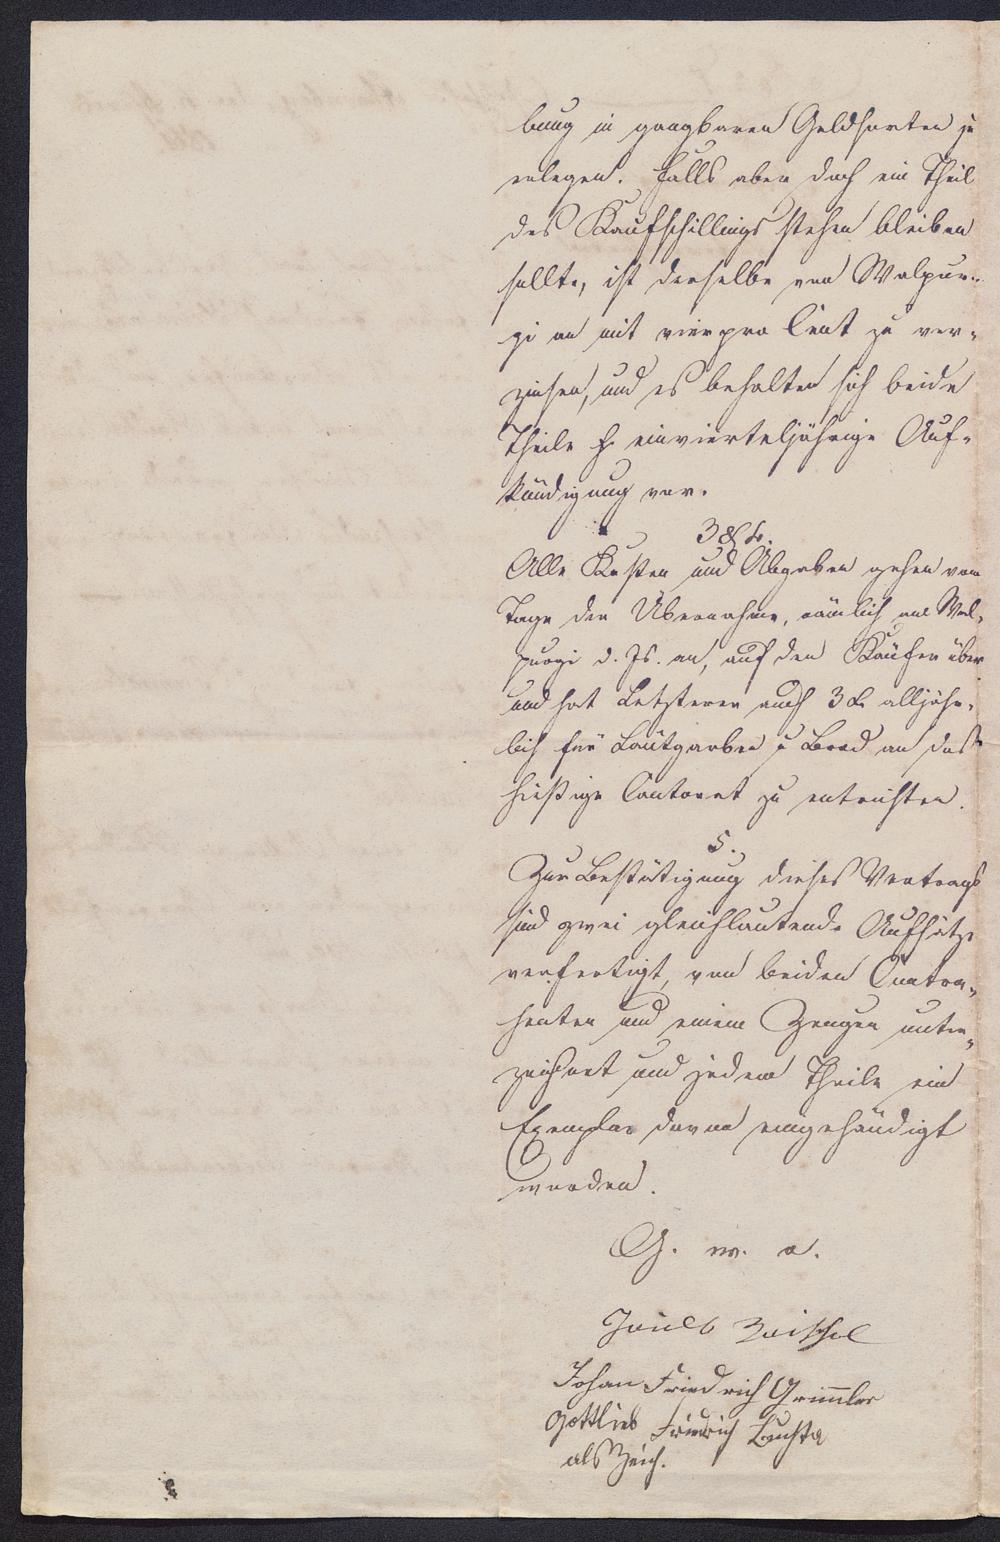 bung in gangbaren Geldsorten zu
erlegen. Falls aber doch ein Theil
des Kaufschillings stehen bleiben
sollte, ist derselbe von Walpur-
gi an mit vier pro Cent zu ver-
zinsen, und es behalten sich beide
Theile einvierteljährige Auf-
kündigung vor.
Alle Kosten und Abgaben gehen vom
Tage der Übernahme, nämlich von Wal-
purgi d. Js. an, auf den Käufer über
und hat Letzterer auch 3 alljähr-
lich für Läutgarben u Brod an das
hießige Cantorat zu entrichten.
5.
Zur Bestätigung dieses Vertrags
sind zwei gleichlautende Aufsätze
verfertigt, von beiden Contra-
henten und einem Zeugen unter-
zeichnet und jedem Theile ein
Exemplar davon eingehändigt
worden.
G. w. o.
Johan Friedrich Grimmler
Gottlieb Friedrich
als Zeich.